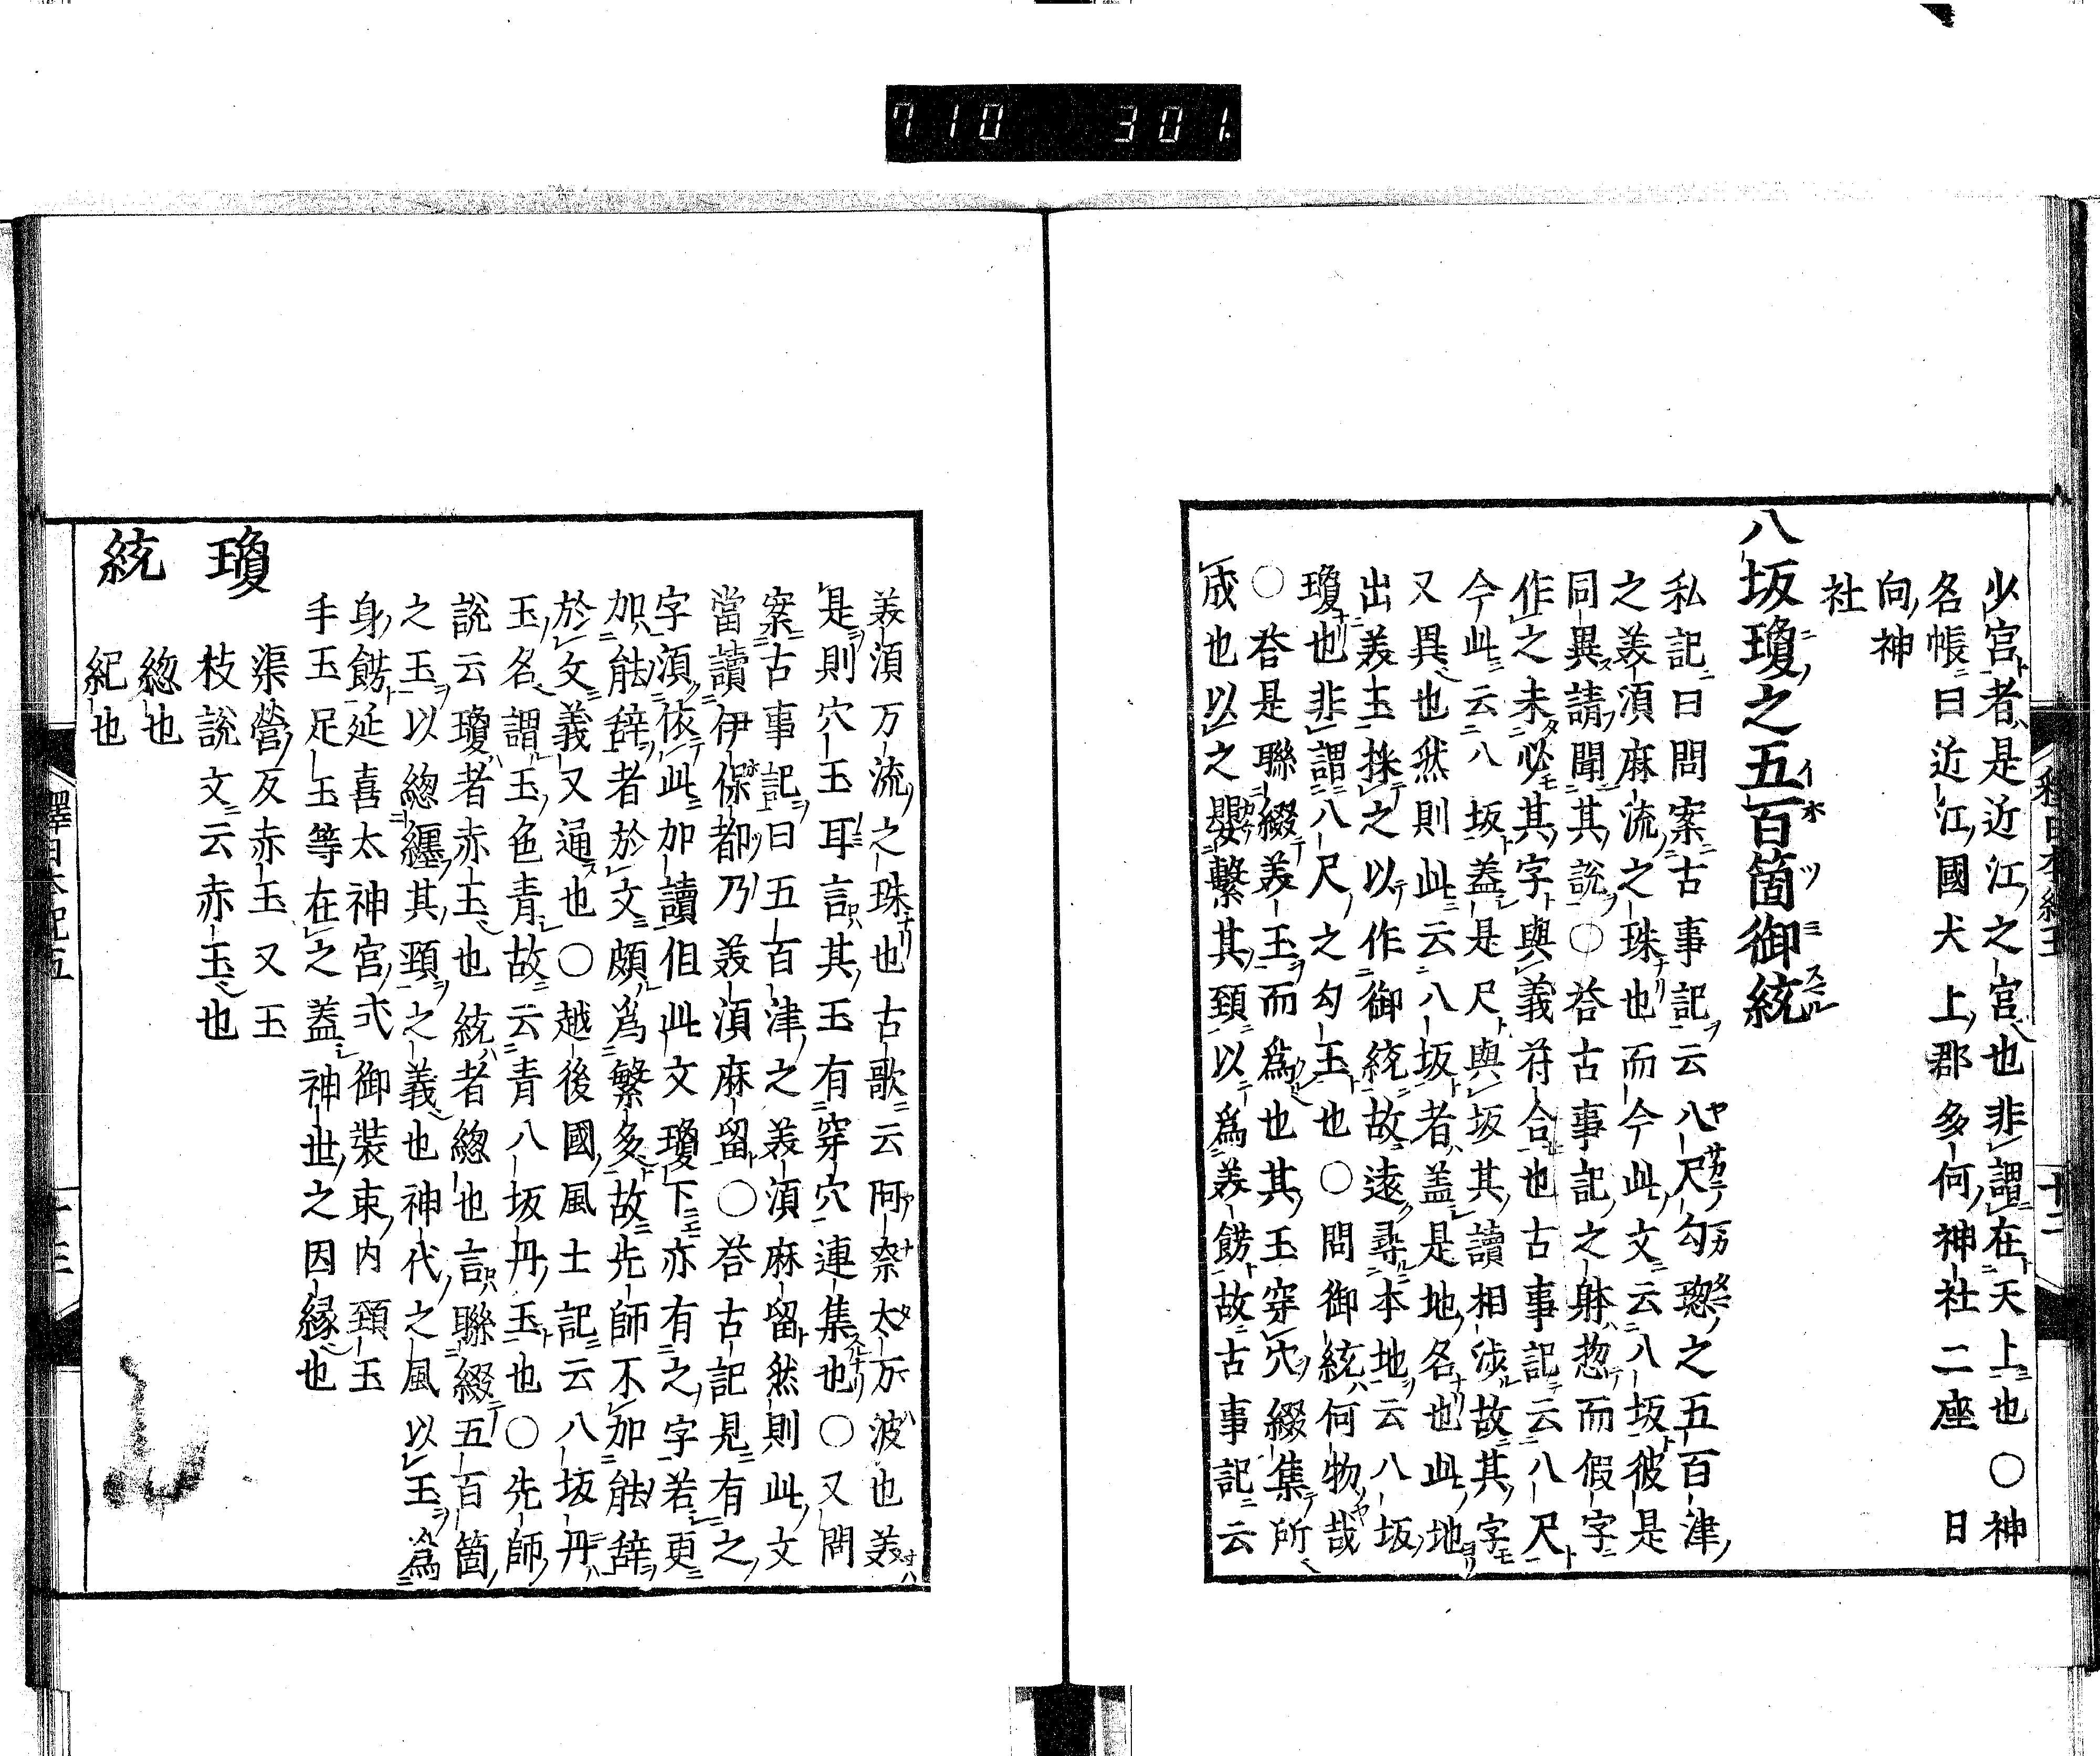 710 301
少宮者是近江之宮也非謂在天上也○神
名帳曰近江國犬上郡多何神社二座 日
向神
社
八坂瓊之五百箇御統
私記曰問案古事記云八尺勾璁之五百津
之美須麻流之珠也而今此文云八坂彼是
同異請聞其說○答古事記之躰惣而假字
作之未必其字與義符合也古事記云八尺
今此云八坂蓋是尺與坂其讀相渉故其字
又異也然則此云八坂者盖是地名也此地
出美玉採之以作御統故遠尋本地云八坂
瓊也非謂八尺之勾玉也○問御統何物哉
○答是聯綴美玉而爲也其玉穿穴綴集所
成也以之嬰繫其頚以爲美餝故古事記云
美須万流之珠也古歌云阿奈太万波也美
是則穴玉耳言其玉有穿穴連集也○又問
案古事記曰五百津之美須麻留然則此文
當讀伊保都乃美須麻留○答古記見有之
字須依此加讀但此文瓊下亦有之字若更
加能辞者於文頗爲繁多故先師不加能辞
於文義又通也○越後國風土記云八坂丹
玉名謂玉色青故云青八坂丹玉也○先師
說云瓊者赤玉也統者總也言聯綴五百箇
之玉以總纒其頸之義也神代之風以玉爲
身餝延喜太神宮式御裝束内頚玉
手玉足玉等在之蓋神世之因縁也
瓊
渠營反赤玉又玉
枝說文云赤玉也
統
惣也
紀也
釋日本紀五
十三
十二